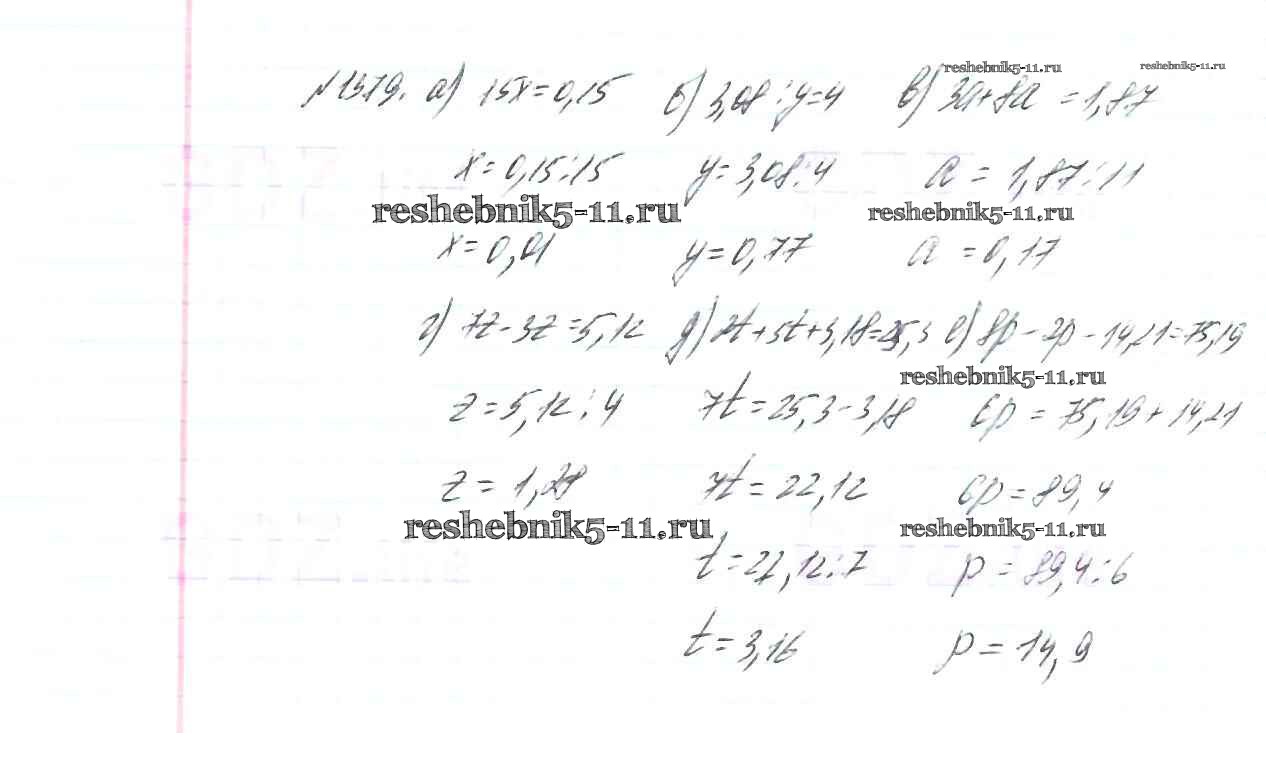 reshebnik5-11.ru reshebnik5-11.ru
№1379. а) 15x=0,15 б) 3,08:y=4 в) 3a+8a =1,87
x=0,15:15 y=3,08:4 a = 1,87:11
reshebnik5-11.ru reshebnik5-11.ru
x=0,01 y=0,77 a =0,17
г) 7z-3z=5,12 д) 2t+5t+3,18=25,3 е) 8p-2p-14,21=75,19
reshebnik5-11.ru
z=5,12:4 7t=25,3-3,18 6p = 75,19+14,21
z= 1,28 7t=22,12 6p=89,4
reshebnik5-11.ru reshebnik5-11.ru
t=22,12:7 p = 89,4:6
t=3,16 p = 14,9